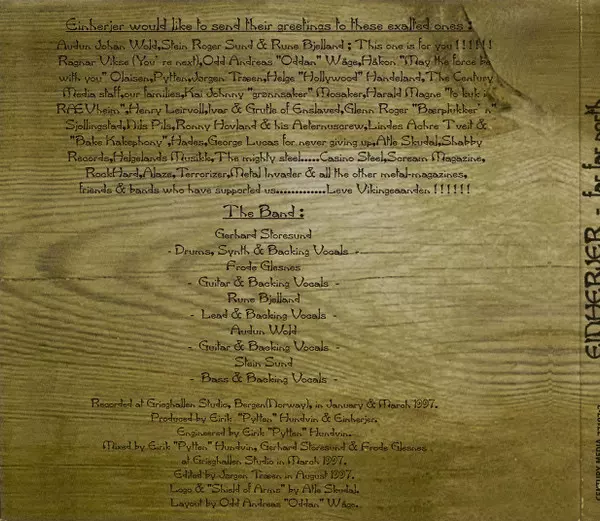 Einherjer would like to send their greetings to these exalted ones :
Audun Johan Wold,Stein Roger Sund & Rune Bjelland ; This one is for you ! ! ! ! ! !
Ragnar Vikse (You're next),Odd Andreas "Oddan" Wåge,Håkon "May the force be
with you" Olaisen,Pytten,Jørgen Træen,Helge "Hollywood" Handeland,The Century
Media staff,our families,Kai Johnny "grønnsaker" Mosaker,Harald Magne "to kuk i
RÆVheim",Henry Leirvoll,Ivar & Grutle of Enslaved,Glenn Roger "Bærplukker'n"
Sjollingstad,Nils Pils,Ronny Hovland & his Aeternuscrew,Lindes Achre Tveit &
"Bake Kakephony",Hades,George Lucas for never giving up,Atle Skudal,Shabby
Records,Helgelands Musikk,The mighty steel.....Casino Steel,Scream Magazine,
RockHard,Ablaze,Terrorizer,Metal Invader & all the other metal-magazines,
friends & bands who have supported us.............Leve Vikingeaanden ! ! ! ! ! !
The Band :
Gerhard Storesund
- Drums, Synth & Backing Vocals -
Frode Glesnes
- Guitar & Backing Vocals -
Rune Bjelland
- Lead & Backing Vocals -
Audun Wold
- Guitar & Backing Vocals -
Stein Sund
- Bass & Backing Vocals -
Recorded at Grieghallen Studio, Bergen(Norway), in January & March 1997.
Produced by Eirik "Pytten" Hundvin & Einherjer.
Engineered by Eirik "Pytten" Hundvin.
Mixed by Eirik "Pytten" Hundvin, Gerhard Storesund & Frode Glesnes
at Grieghallen Studio in March 1997.
Edited by Jørgen Træen in August 1997.
Logo & "Shield of Arms" by Atle Skudal.
Layout by Odd Andreas "Oddan" Wåge.
EINHERJER - far far north
CENTURY MEDIA